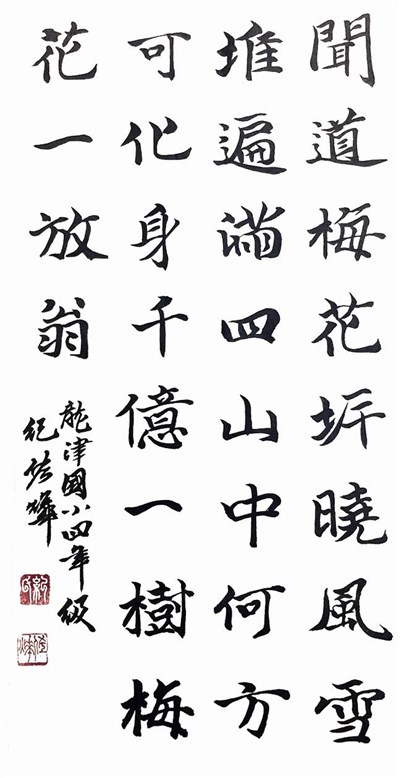 聞道梅花坼曉風雪
堆遍滿四山中何方
可化身千億一樹梅
花一放翁
龍津國小四年級
紀